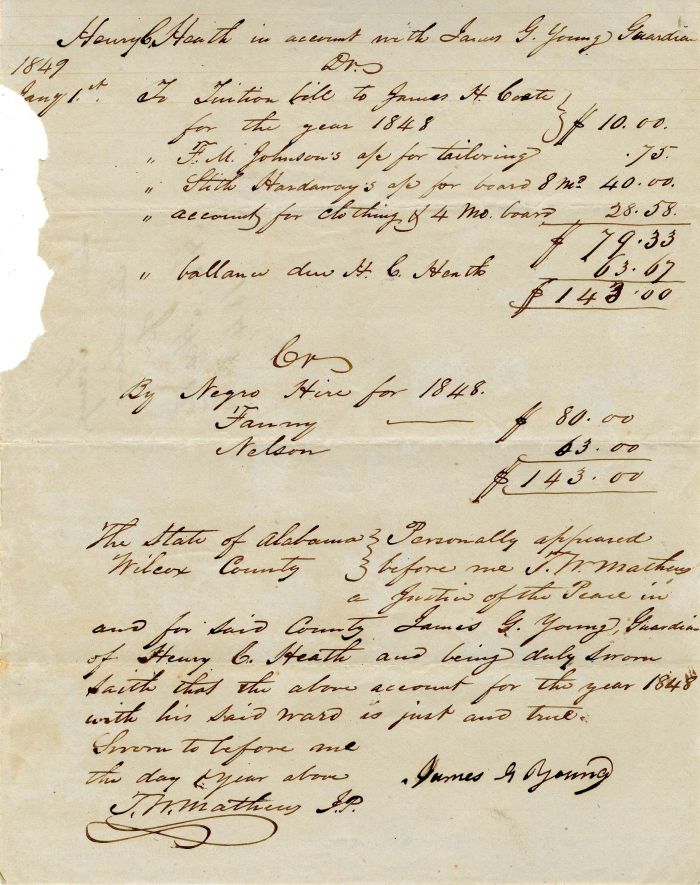 Henry C. Heath in account with James G. Young Guardian
1849 Dr.
Jany 1.st To Tuition bill to James H. Coate
for the year 1848 } $ 10.00.
" F. M. Johnson's a/c for tailoring .75.
" Stith Hardaway's a/c for board 8 mo 40.00.
" account for clothing & 4 Mo. board 28.58.
$ 79.33
" ballance due H. C. Heath 63.67
$ 143.00
Cr
By Negro Hire for 1848.
Fanny — $ 80.00
Nelson 63.00
$ 143.00
The State of Alabama } Personally appeared
Wilcox County } before me T. W. Mathews
a Justice of the Peace in
and for said County James G. Young, Guardian
of Henry C. Heath and being duly sworn
saith that the above account for the year 1848
with his said ward is just and true.
Sworn to before me
the day & year above James G Young
T. W. Mathews J.P.